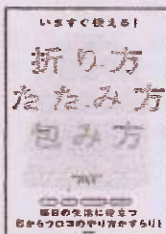 いますぐ使える!
折り方
たたみ方
包み方
毎日の生活に役立つ
目からウロコのやり方がずらり!